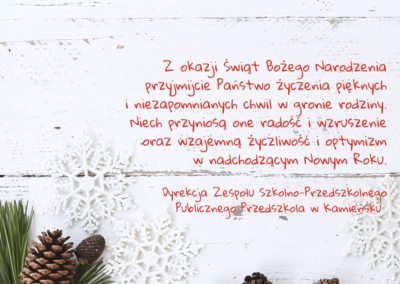 Z okazji Świąt Bożego Narodzenia
przyjmijcie Państwo życzenia pięknych
i niezapomnianych chwil w gronie rodziny.
Niech przyniosą one radość i wzruszenie
oraz wzajemną życzliwość i optymizm
w nadchodzącym Nowym Roku.
Dyrekcja Zespołu Szkolno-Przedszkolnego
Publicznego Przedszkola w Kamieńsku